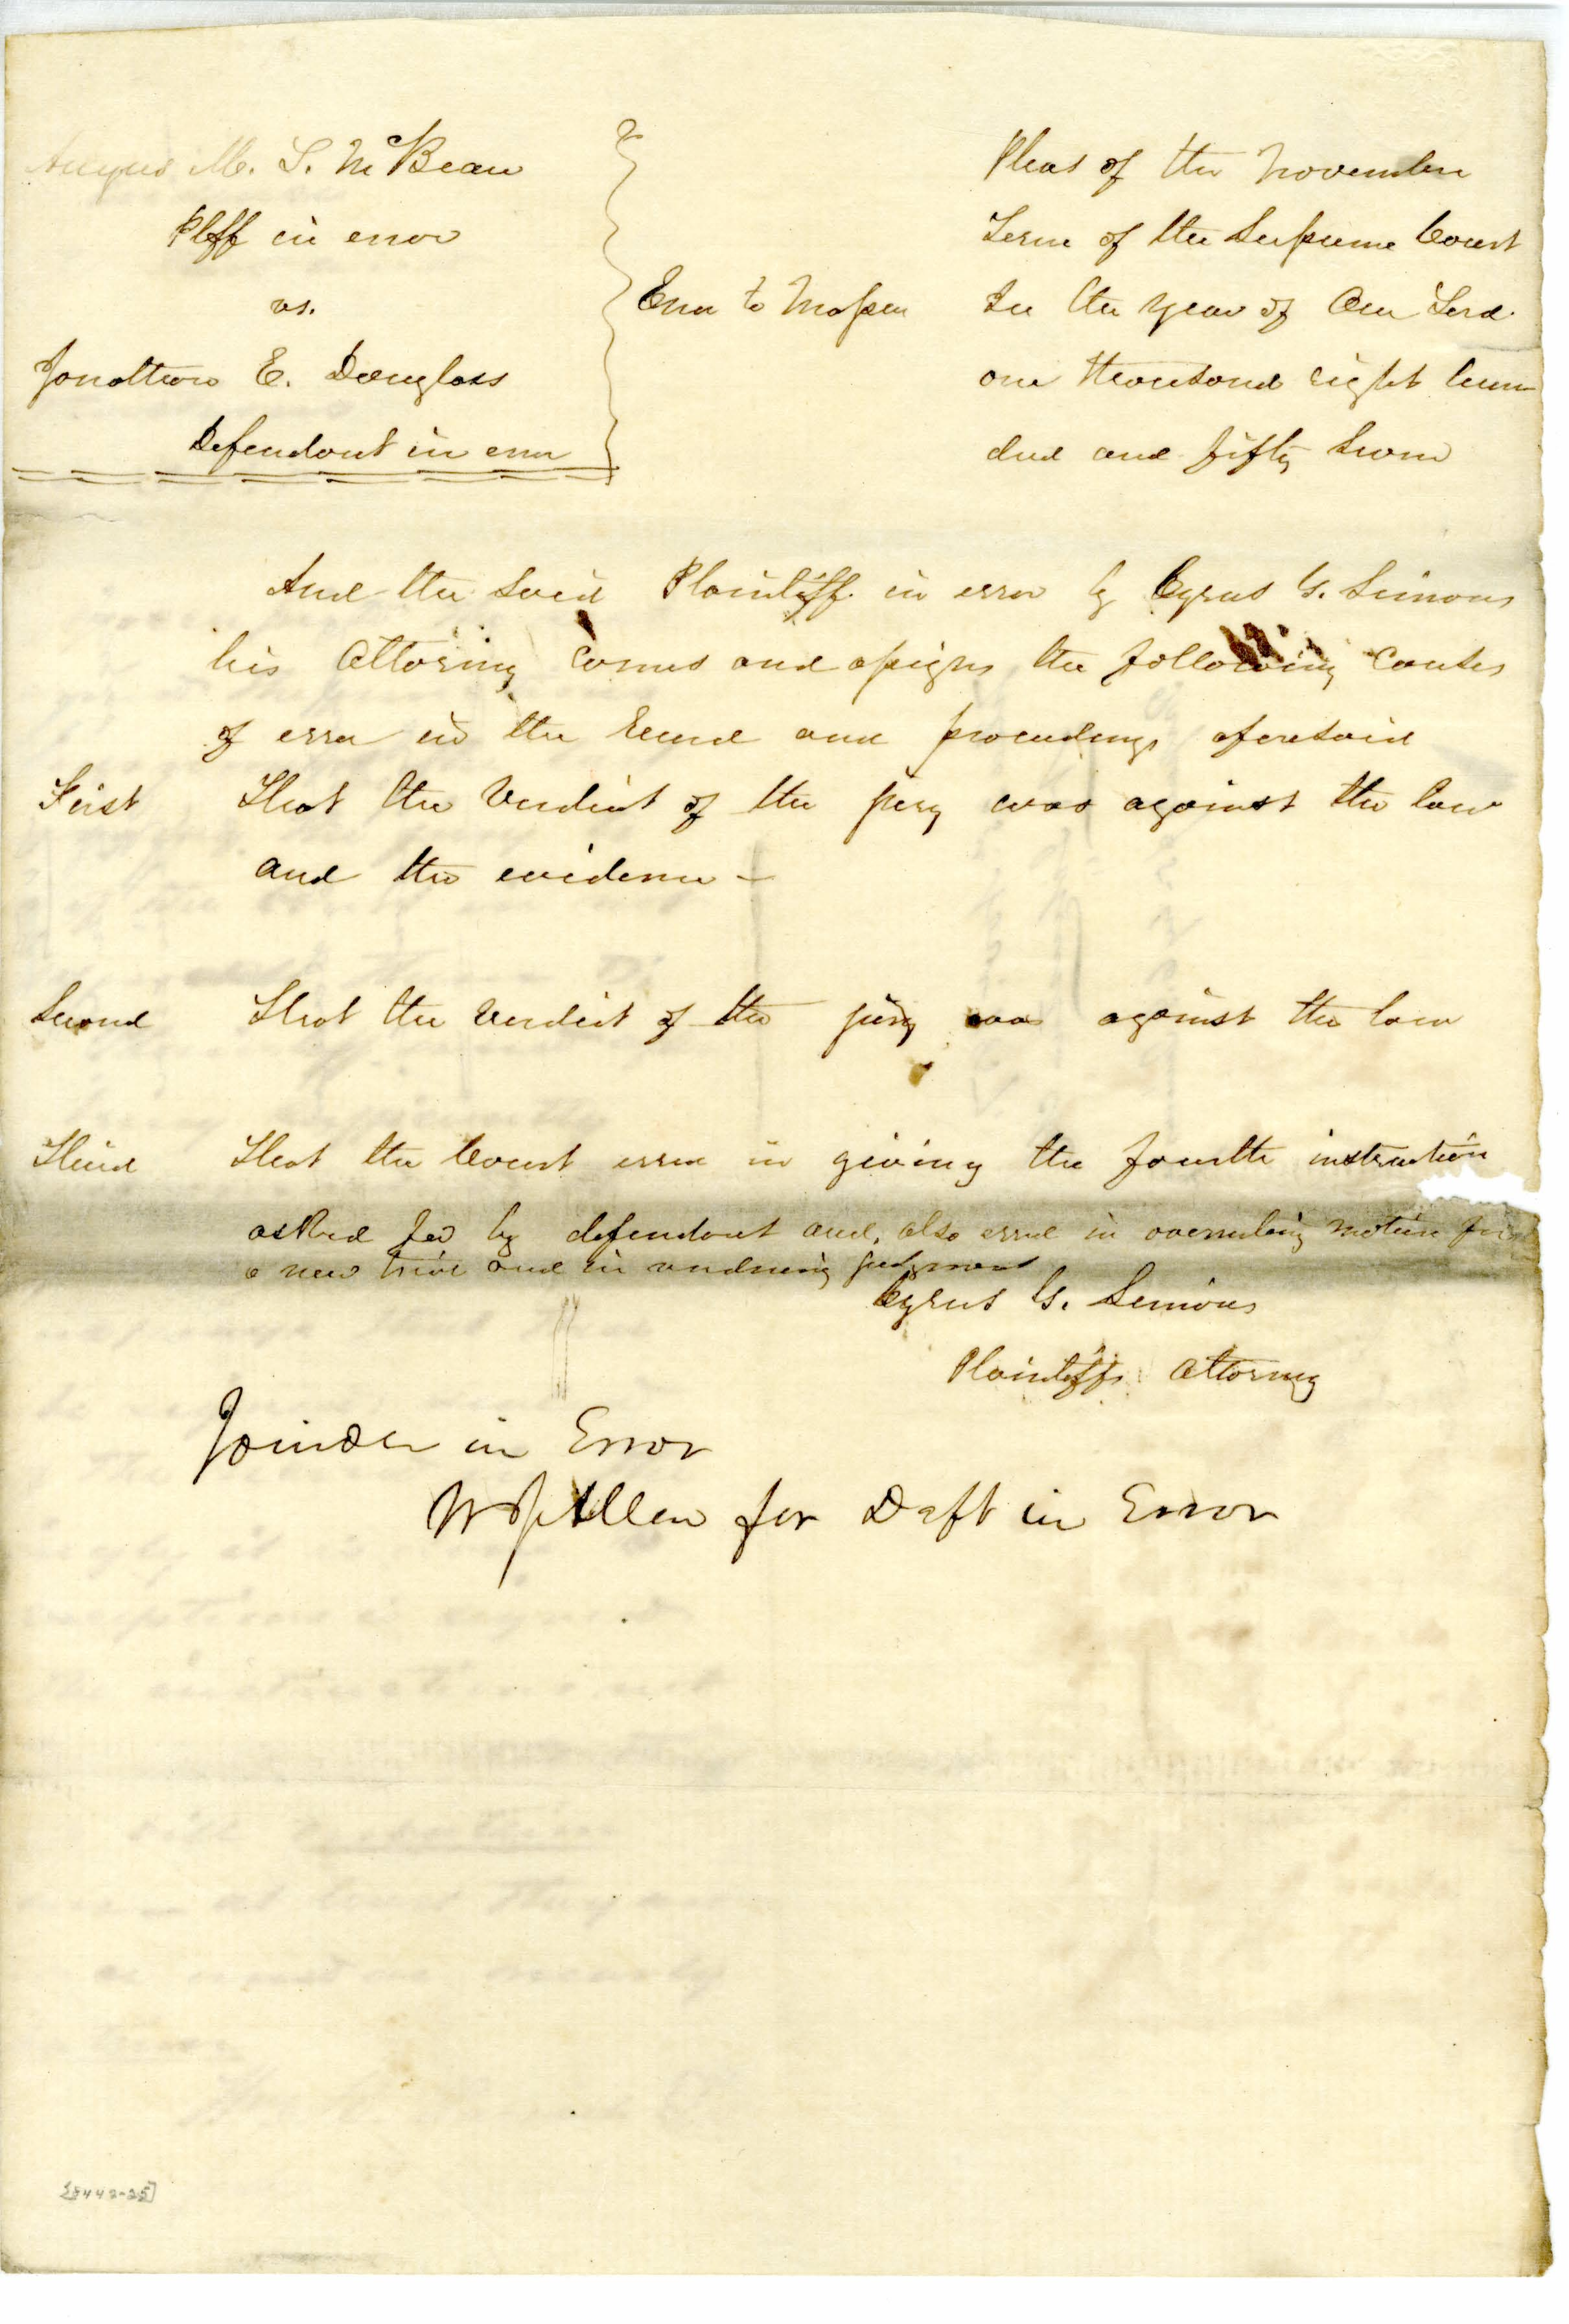 Angus M. L. McBean
Plff in error
vs.
Jonathan E. Douglass
Defendant in error
Error to Massac
Pleas of the November
Term of the Supreme Court
In the year of Our Lord
one thousand eight hun
dred and fifty seven
And the said Plaintiff in error by Cyrus G. Simons
his Attorney comes and assigns the following causes
of error in the record and proceedings aforesaid
First That the verdict of the jury was against the law
and the evidence –
Second That the verdict of the jury was against the law
Third That the Court erred in giving the fourth instruction
asked for by defendant and, also erred in overruling motion for
a new trial and in rendering judgment
Cyrus G. Simons
Plaintiffs Attorney
Joinder in Error
W J Allen for Deft in Error
[8442-25]